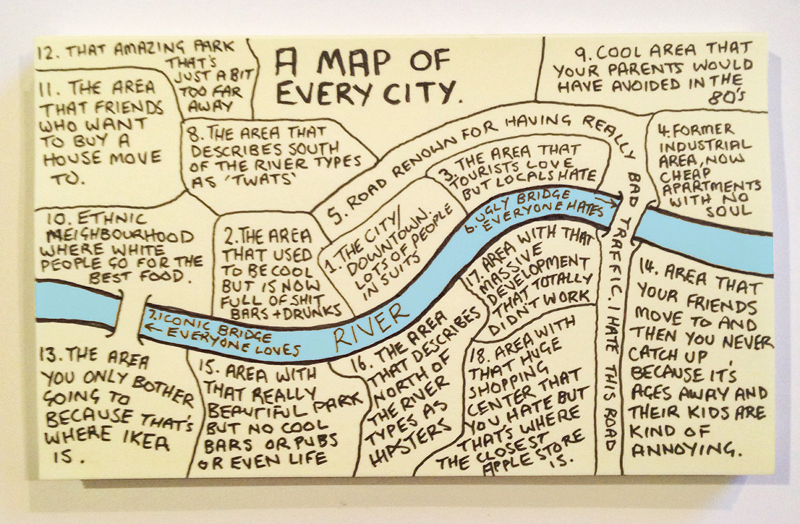 A MAP OF
EVERY CITY.
12. THAT AMAZING PARK
THAT'S
JUST A BIT
TOO FAR
AWAY
9. COOL AREA THAT
YOUR PARENTS WOULD
HAVE AVOIDED IN THE
80'S
11. THE AREA
THAT FRIENDS
WHO WANT
TO BUY A
HOUSE MOVE
TO.
8. THE AREA THAT
DESCRIBES SOUTH
OF THE RIVER TYPES
AS 'TWATS'
5. ROAD RENOWN FOR HAVING REALLY BAD TRAFFIC. I HATE THIS ROAD
3. THE AREA THAT
TOURISTS LOVE
BUT LOCALS HATE
4. FORMER
INDUSTRIAL
AREA, NOW
CHEAP
APARTMENTS
WITH NO
SOUL
10. ETHNIC
NEIGHBOURHOOD
WHERE WHITE
PEOPLE GO FOR THE
BEST FOOD.
2. THE AREA
THAT USED
TO BE COOL
BUT IS NOW
FULL OF SHIT
BARS + DRUNKS
1. THE CITY/
DOWNTOWN.
LOTS OF PEOPLE
IN SUITS
6. UGLY BRIDGE
EVERYONE HATES
7. ICONIC BRIDGE
EVERYONE LOVES
RIVER
17. AREA WITH THAT
MASSIVE
DEVELOPMENT
THAT TOTALLY
DIDN'T WORK
14. AREA THAT
YOUR FRIENDS
MOVE TO AND
THEN YOU NEVER
CATCH UP
BECAUSE IT'S
AGES AWAY AND
THEIR KIDS ARE
KIND OF
ANNOYING.
13. THE AREA
YOU ONLY BOTHER
GOING TO
BECAUSE THAT'S
WHERE IKEA
IS.
15. AREA WITH
THAT REALLY
BEAUTIFUL PARK
BUT NO COOL
BARS OR PUBS
OR EVEN LIFE
16. THE AREA
THAT DESCRIBES
NORTH OF
THE RIVER
TYPES AS
HIPSTERS
18. AREA WITH
THAT HUGE
SHOPPING
CENTER THAT
YOU HATE BUT
THAT'S WHERE
THE CLOSEST
APPLE STORE
IS.